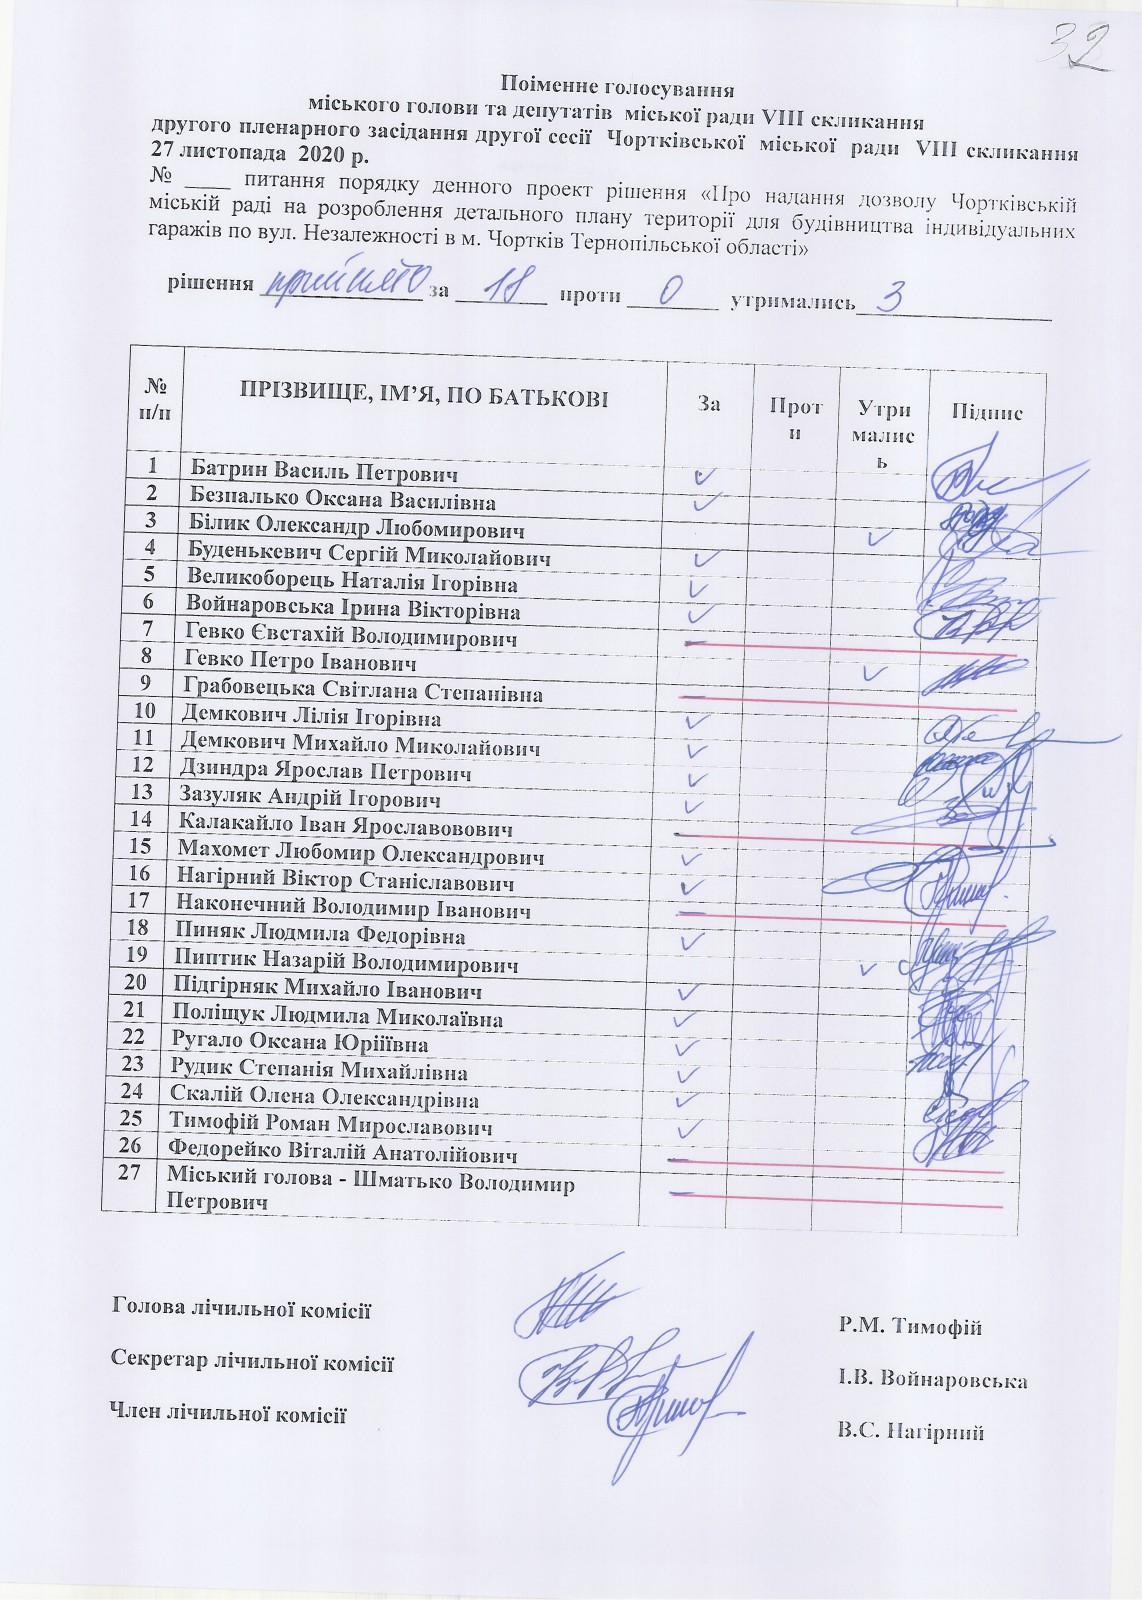 32
Поіменне голосування
міського голови та депутатів міської ради VIII скликання
другого пленарного засідання другої сесії Чортківської міської ради VIII скликання
27 листопада 2020 р.
№ ____ питання порядку денного проект рішення «Про надання дозволу Чортківській
міській раді на розроблення детального плану території для будівництва індивідуальних
гаражів по вул. Незалежності в м. Чортків Тернопільської області»
рішення прийнято за 18 проти 0 утримались 3
№ п/п ПРІЗВИЩЕ, ІМ’Я, ПО БАТЬКОВІ За Проти Утримались Підпис
1 Батрин Василь Петрович ✓
2 Безпалько Оксана Василівна ✓
3 Білик Олександр Любомирович ✓
4 Буденькевич Сергій Миколайович ✓
5 Великоборець Наталія Ігорівна ✓
6 Войнаровська Ірина Вікторівна ✓
7 Гевко Євстахій Володимирович —
8 Гевко Петро Іванович ✓
9 Грабовецька Світлана Степанівна —
10 Демкович Лілія Ігорівна ✓
11 Демкович Михайло Миколайович ✓
12 Дзиндра Ярослав Петрович ✓
13 Зазуляк Андрій Ігорович ✓
14 Калакайло Іван Ярославовович —
15 Махомет Любомир Олександрович ✓
16 Нагірний Віктор Станіславович ✓
17 Наконечний Володимир Іванович —
18 Пиняк Людмила Федорівна ✓
19 Пиптик Назарій Володимирович ✓
20 Підгірняк Михайло Іванович ✓
21 Поліщук Людмила Миколаївна ✓
22 Ругало Оксана Юріїївна ✓
23 Рудик Степанія Михайлівна ✓
24 Скалій Олена Олександрівна ✓
25 Тимофій Роман Мирославович ✓
26 Федорейко Віталій Анатолійович —
27 Міський голова - Шматько Володимир
Петрович —
Голова лічильної комісії Р.М. Тимофій
Секретар лічильної комісії І.В. Войнаровська
Член лічильної комісії В.С. Нагірний